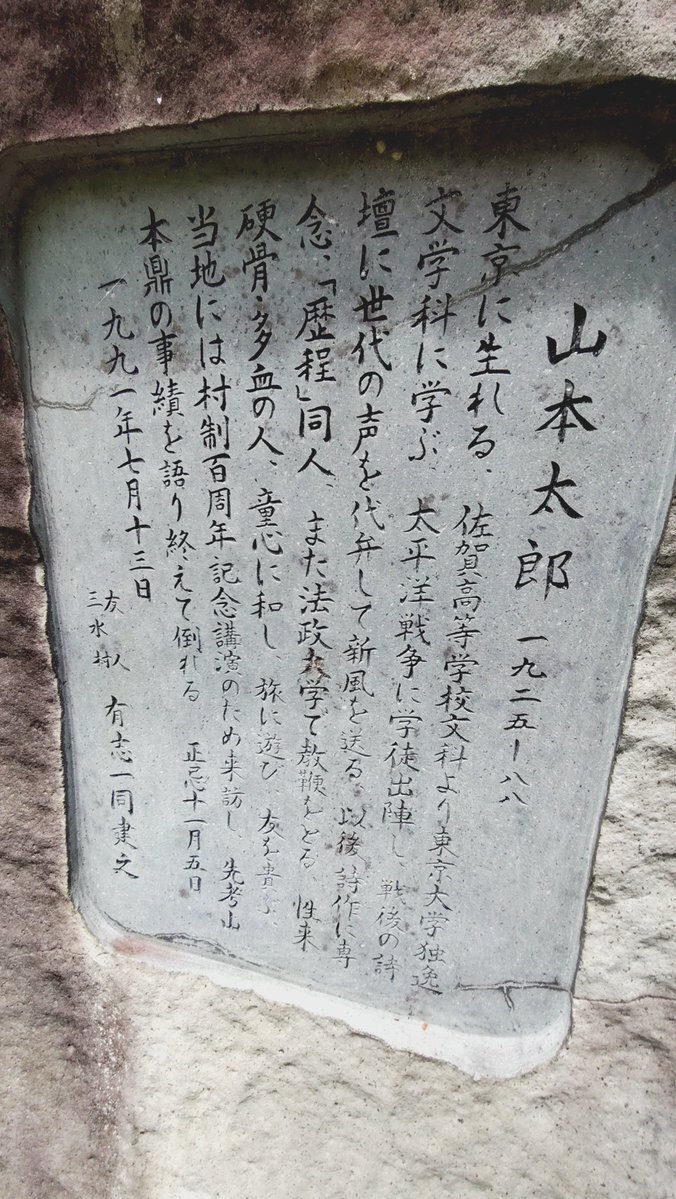 山本太郎 一九二五ー八八
東京に生れる、佐賀高等学校文科より東京大学独逸
文学科に学ぶ 太平洋戦争に学徒出陣し、戦後の詩
壇に世代の声を代弁して新風を送る 以後 詩作に専
念、「歴程」同人、また法政大学で教鞭をとる 性来
硬骨・多血の人、童心に和し 旅に遊び、友を貴ぶ、
当地には村制百周年記念講演のため来訪し、先考山
本鼎の事績を語り終えて倒れる 正忌十一月五日
一九九一年七月十三日
友人
三水村 有志一同建之